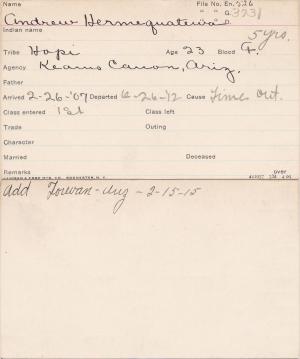 Name File No. En. 526
Andrew Hermequatewa " " G. 3231
Indian name 5 yrs.
Tribe Hopi Age 23 Blood F.
Agency Keams Canon, Ariz.
Father
Arrived 2-26-'07 Departed 6-26-'12 Cause Time out.
Class entered 1st Class left
Trade Outing
Character
Married Deceased
Remarks over
Add -Ariz - 2-15-15